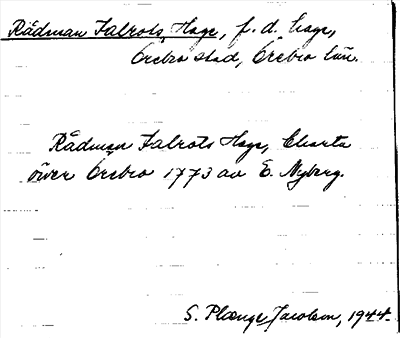 Rådman Falrots Hage, f. d. hage,
Örebro stad, Örebro län.
Rådman Falrots Hage, Charta
över Örebro 1773 av E. Nyberg.
S. Plænge Jacobson, 1944.